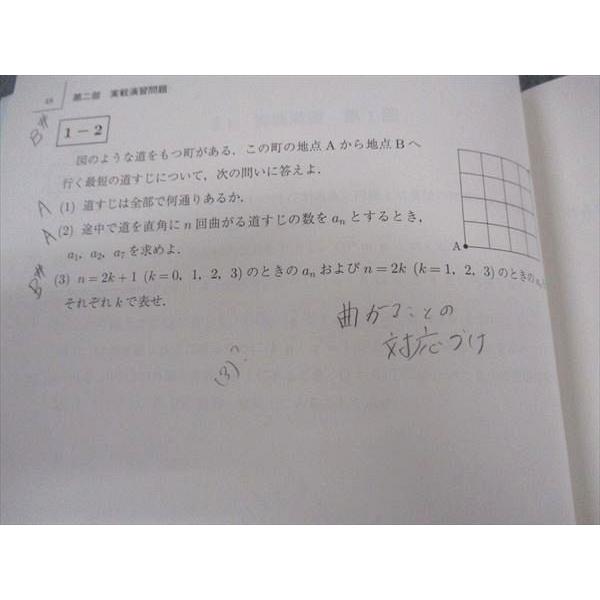 48 第二部 実戦演習問題
B#
1-2
図のような道をもつ町がある．この町の地点Aから地点Bへ
行く最短の道すじについて，次の問いに答えよ．
A (1) 道すじは全部で何通りあるか．
A (2) 途中で道を直角に n 回曲がる道すじの数を aₙ とするとき，
a₁, a₂, a₇ を求めよ．
B# (3) n=2k+1 (k=0, 1, 2, 3) のときの aₙ および n=2k (k=1, 2, 3) のときの
それぞれ k で表せ．
A
曲がることの
対応づけ
(3)?